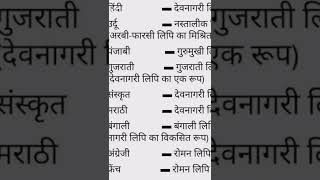 हिंदी – देवनागरी लि
उर्दू – नस्तालीक
अरबी-फारसी लिपि का मिश्रित
पंजाबी – गुरुमुखी लि
गुजराती – गुजराती लि
देवनागरी लिपि का एक रूप)
संस्कृत – देवनागरी लि
मराठी – देवनागरी लि
बंगाली – बंगाली लि
नागरी लिपि का विकसित रूप)
अंग्रेजी – रोमन लिपि
फ्रेंच – रोमन लिपि